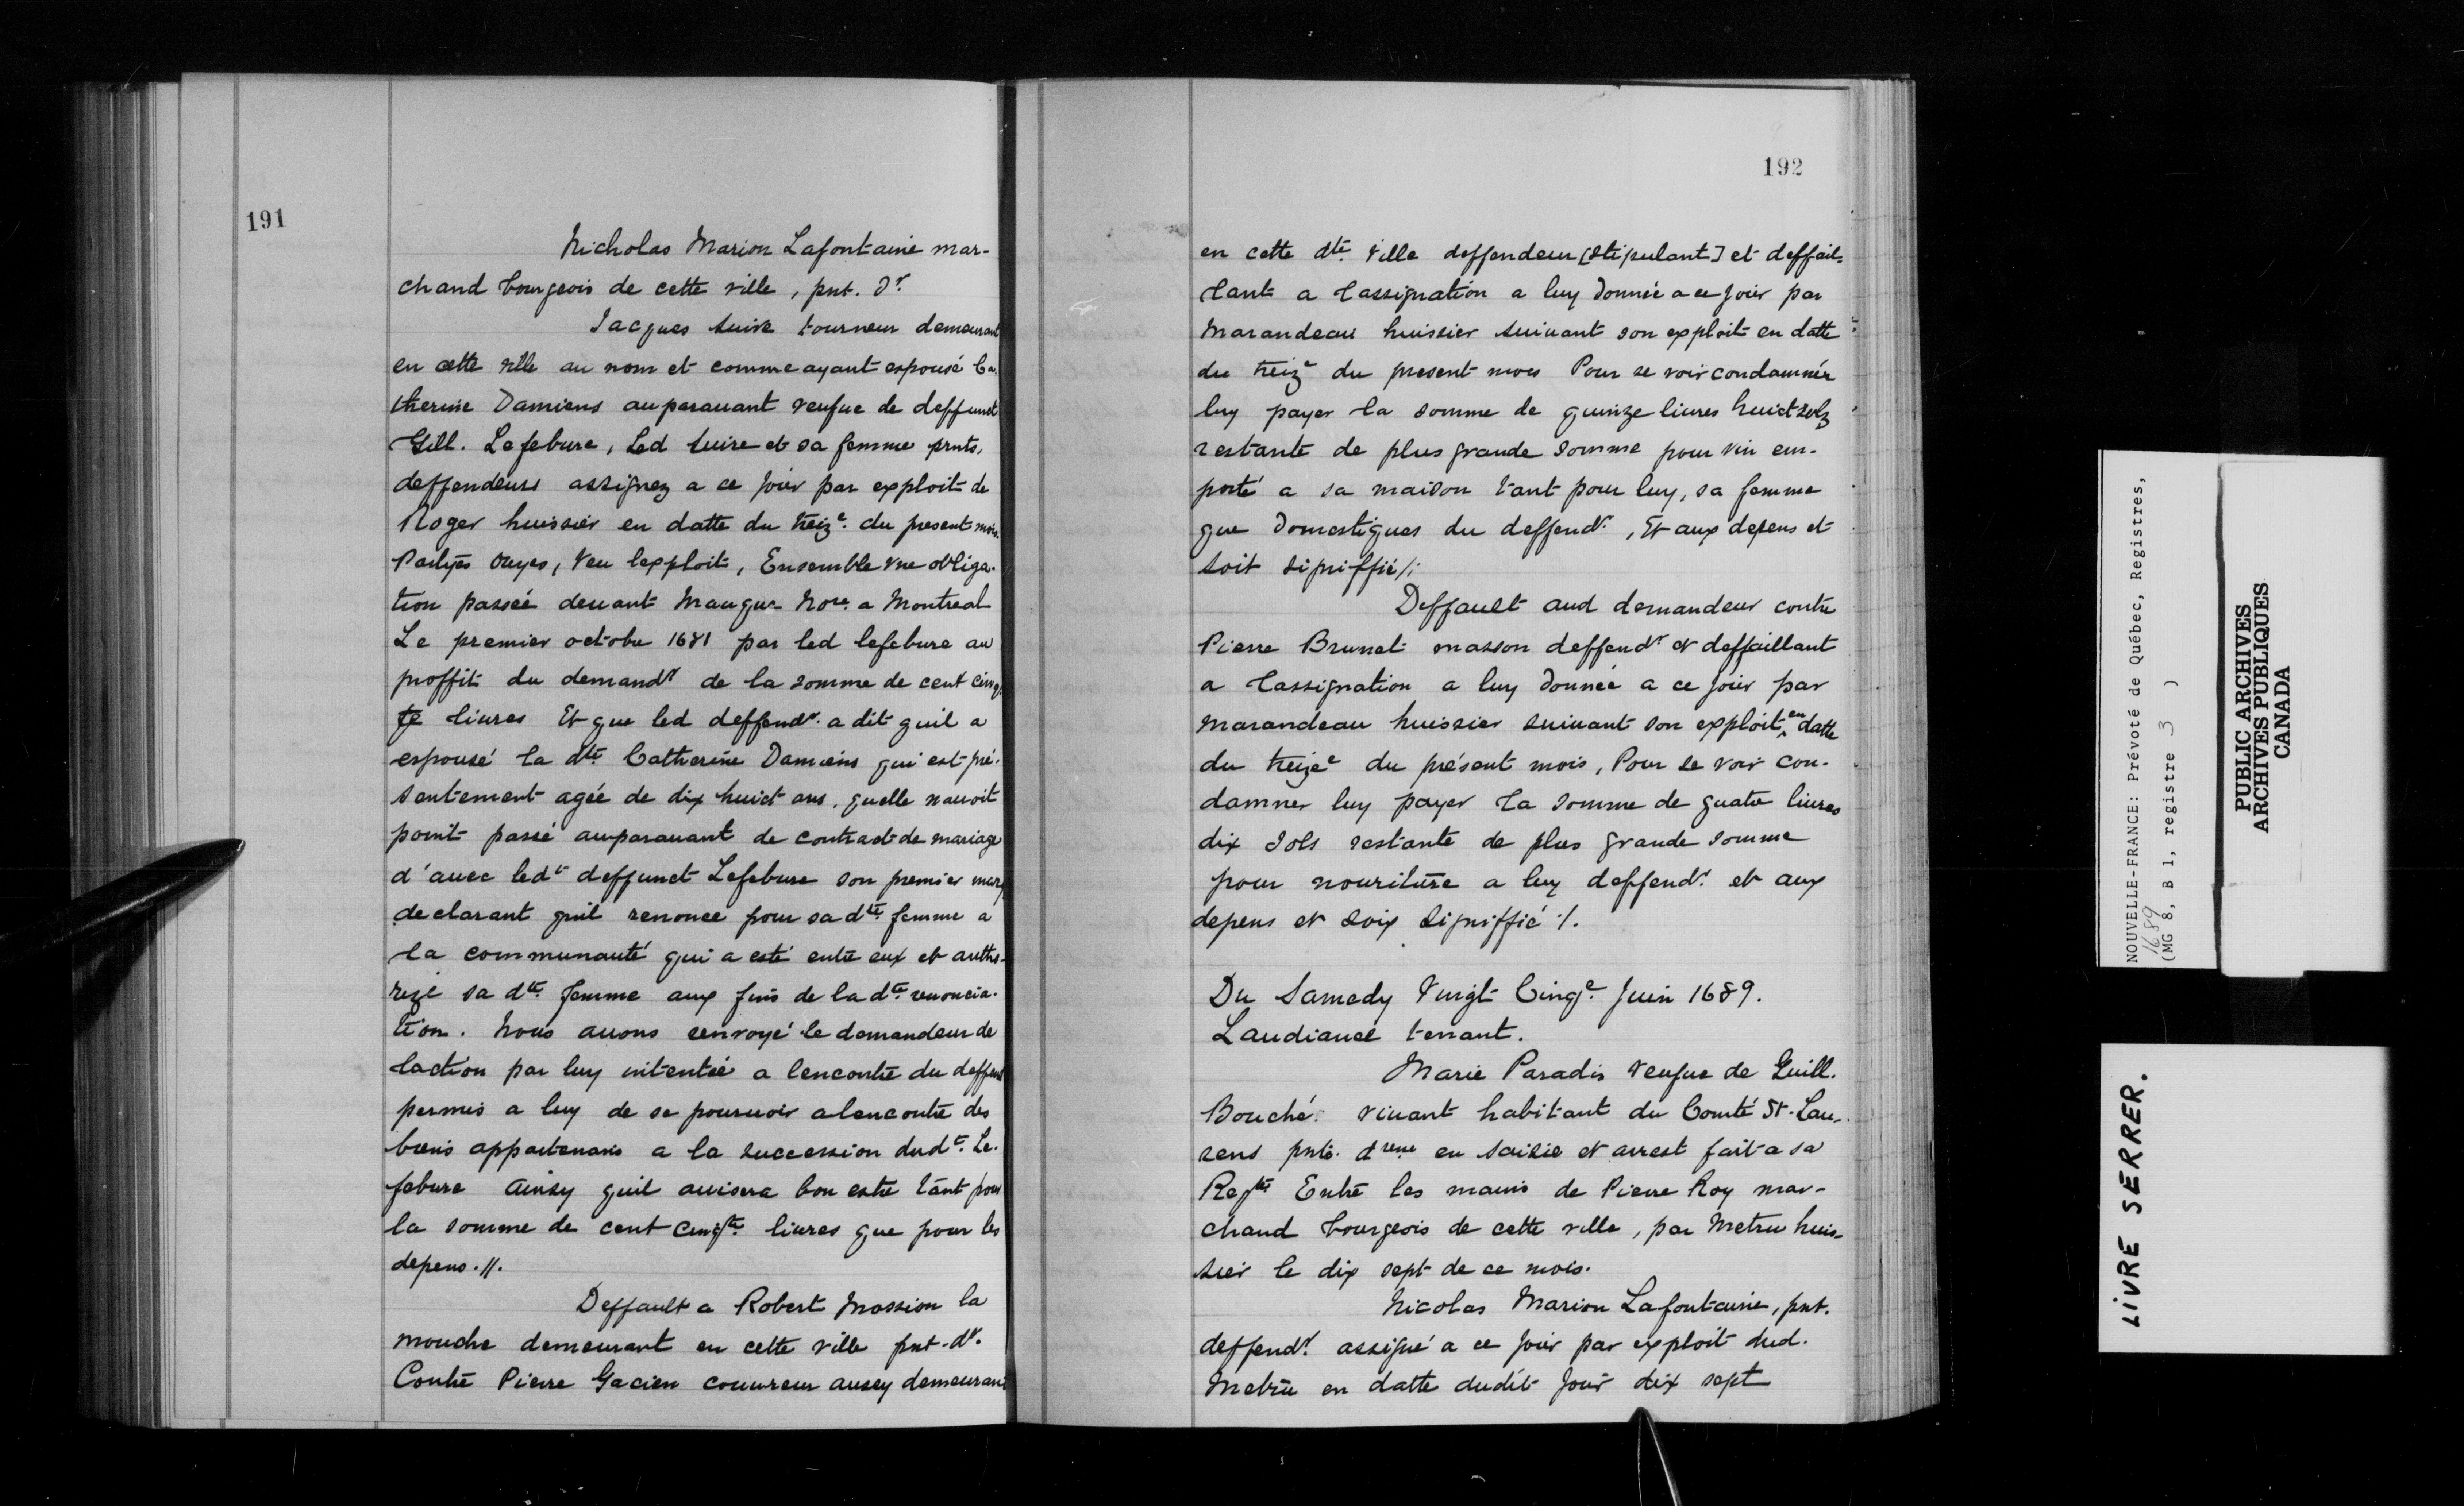 191
Nicholas Marion Lafontaine mar-
chand bourgeois de cette ville, pnt. Dr.
Jacques Suire tourneur demeurant
en cette ville au nom et comme ayant espousé Ca-
therine Damiens auparauant veufue de deffunct
Gill. Lefebure, Led Suire et sa femme pnts.
deffendeurs assignez a ce jour par exploit de
Roger huissier en datte du treize. du present mois.
Partyes ouyes, Veu lexploit, Ensemble vne obliga-
tion passée deuant Maugue Nore. a Montreal
Le premier octobre 1681 par led lefebure au
proffit du demandr de la somme de cent cinq.
te liures Et que led deffendr. a dit quil a
espousé la dte. Catherine Damiens qui est pré-
sentement agée de dix huict ans, quelle nauoit
point passé auparauant de contract de mariage
d'auec ledt deffunct Lefebure son premier mary
declarant quil renonce pour sa dte. femme a
la communauté qui a esté entre eux et autho-
rizé sa dte. femme aux fins de la dte. renoncia-
tion. Nous auons renvoyé le demandeur de
laction par luy intentée a lencontre du deffend
permis a luy de se pouruoir alencontre des
biens appartenans a la succession dudt. Le-
febure Ainsy quil auisera bon estre tant pour
la somme de cent cinqte. liures que pour les
depens.//.
Deffault a Robert Mossion la
mouche demeurant en cette ville pnt. dr.
Contre Pierre Gacien couureur aussy demeurant
192
en cette dte. Ville deffendeur [stipulant] et deffail-
lant a lassignation a luy donnée a ce jour par
Marandeau huissier suiuant son exploit en datte
du treize du present mois Pour se voir condamner
luy payer la somme de quinze liures huict solz
restante de plus grande somme pour vin em-
porté a sa maison tant pour luy, sa femme
que domestiques du deffendr., Et aux depens et
soit signiffié/.
Deffault aud demandeur contre
Pierre Brunet masson deffendr et deffaillant
a lassignation a luy donnée a ce jour par
Marandeau huissier suiuant son exploit en datte
du treizee du présent mois, Pour se voir con-
damner luy payer la somme de quatre liures
dix sols restante de plus grande somme
pour nouriture a luy deffendr. et aux
depens et soix signiffié ./.
Du Samedy Vingt Cinqe. Juin 1689.
Laudiance tenant.
Marie Paradis veufue de Guill.
Bouché viuant habitant du Comté St-Lau-
rens pnte. dresse en saisie et arrest fait a sa
Reqte. Entre les mains de Pierre Roy mar-
chand bourgeois de cette ville, par Metru huis-
sier le dix sept de ce mois.
Nicolas Marion Lafontaine, pnt.
deffendr. assigné a ce jour par exploit dud.
Metru en datte dudit jour dix sept
NOUVELLE-FRANCE: Prévoté de Québec, Registres,
1689
(MG 8, B 1, registre 3 )
PUBLIC ARCHIVES
ARCHIVES PUBLIQUES
CANADA
LIVRE SERRER.